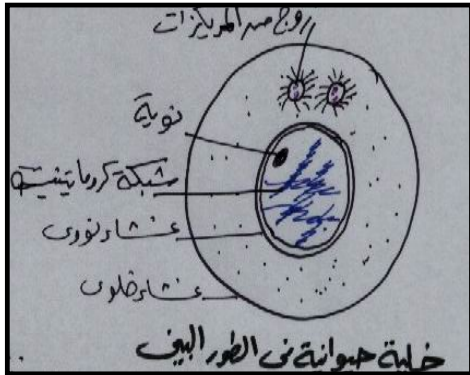 زوج من المريكزات
نوية
شبكة كروماتينية
غشاء نووى
غشاء خلوى
خلية حيوانية فى الطور البينى